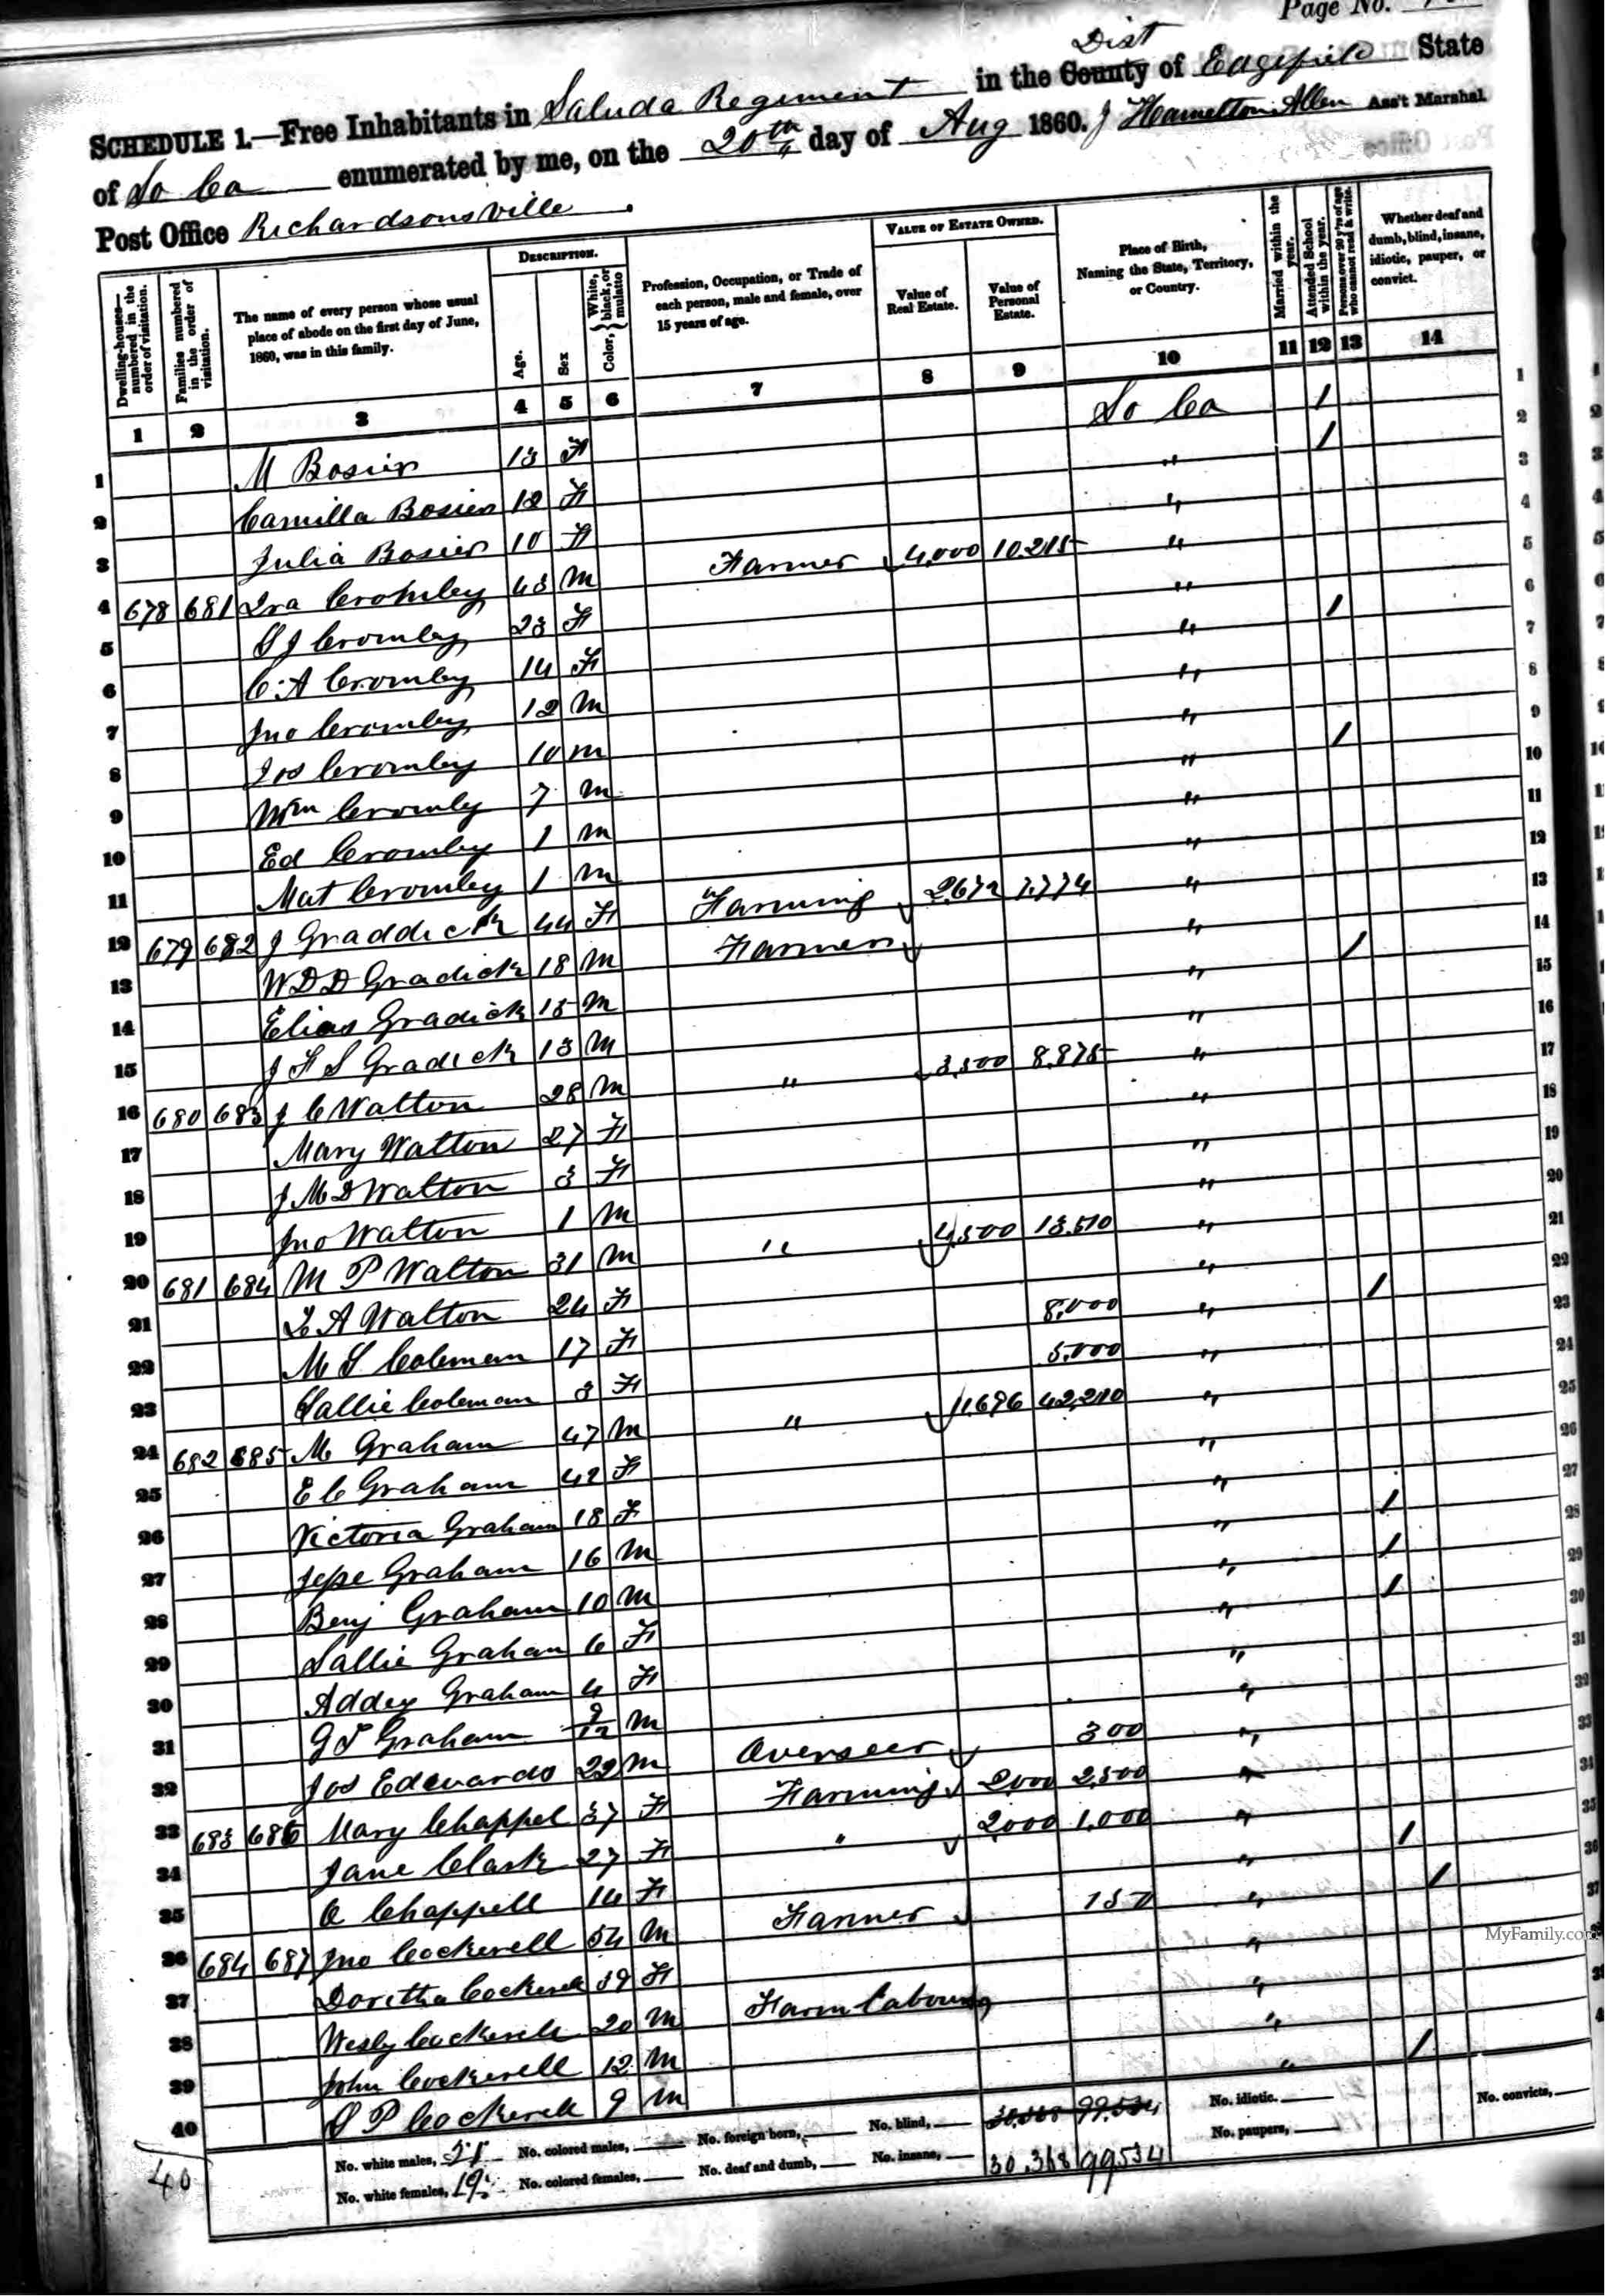 Page No.
SCHEDULE 1.—Free Inhabitants in Saluda Regiment in the County Dist of Edgefield State
of So Ca enumerated by me, on the 20th day of Aug 1860. J Hamelton Allen Ass't Marshal.
Post Office Richardsonsville.
Dwelling-houses—numbered in the order of visitation. Families numbered in the order of visitation. The name of every person whose usual place of abode on the first day of June, 1860, was in this family. DESCRIPTION. Age. Sex Color, {White, black, or mulatto Profession, Occupation, or Trade of each person, male and female, over 15 years of age. VALUE OF ESTATE OWNED. Value of Real Estate. Value of Personal Estate. Place of Birth, Naming the State, Territory, or Country. Married within the year. Attended School within the year. Persons over 20 y'rs of age who cannot read & write. Whether deaf and dumb, blind, insane, idiotic, pauper, or convict.
1 2 3 4 5 6 7 8 9 10 11 12 13 14
1 M Bosier 13 F So Ca 1 1
2 Camilla Bosier 12 F " 1 2
3 Julia Bosier 10 F " 3
4 678 681 Ira Cromley 43 M Farmer 4,000 10.215 " 4
5 S J Cromley 23 F " 5
6 C. A Cromley 14 F " 1 6
7 Jno Cromley 12 M " 7
8 Jos Cromley 10 M " 8
9 Wm Cromley 7 M " 1 9
10 Ed Cromley 1 M " 10
11 Mat Cromley 1 M " 11
12 679 682 J Graddick 44 F Farming 2,672 7.774 " 12
13 W D D Gradick 18 M Farmer " 13
14 Elias Gradick 15 M " 1 14
15 J F S Gradick 13 M " 15
16 680 683 J C Walton 28 M " 3,500 8.875 " 16
17 Mary Walton 27 F " 17
18 J M D Walton 3 F " 18
19 Jno Walton 1 M " 19
20 681 684 M P Walton 31 M " 4,500 13.510 " 20
21 L A Walton 24 F " 21
22 M S Coleman 17 F 8.000 " 1 22
23 Sallie Coleman 3 F 5.000 " 23
24 682 685 M Graham 47 M " 11.696 42,210 " 24
25 E C Graham 42 F " 25
26 Victoria Graham 18 F " 26
27 Jesse Graham 16 M " 1 27
28 Benj Graham 10 M " 1 28
29 Sallie Graham 6 F " 1 29
30 Addey Graham 4 F " 30
31 G T Graham 9/12 M " 31
32 Jos Edwards 22 M Overseer 300 " 32
33 683 686 Mary Chappel 37 F Farming 2,000 2,500 " 33
34 Jane Clark 27 F " 2,000 1,000 " 34
35 O Chappell 14 F " 1 35
36 684 687 Jno Cockerell 54 M Farmer 150 " 1 36
37 Doritha Cockerell 39 F " 37
38 Wesly Cockerell 20 M Farm Labouring "
39 John Cockerell 12 M "
40 S P Cockerell 9 M " 1
No. white males, 21 No. colored males, No. foreign born, No. blind, 30,368 99,534 No. idiotic. No. convicts,
No. white females, 19 No. colored females, No. deaf and dumb, No. insane, 30.368 99534 No. paupers,
40
MyFamily.com